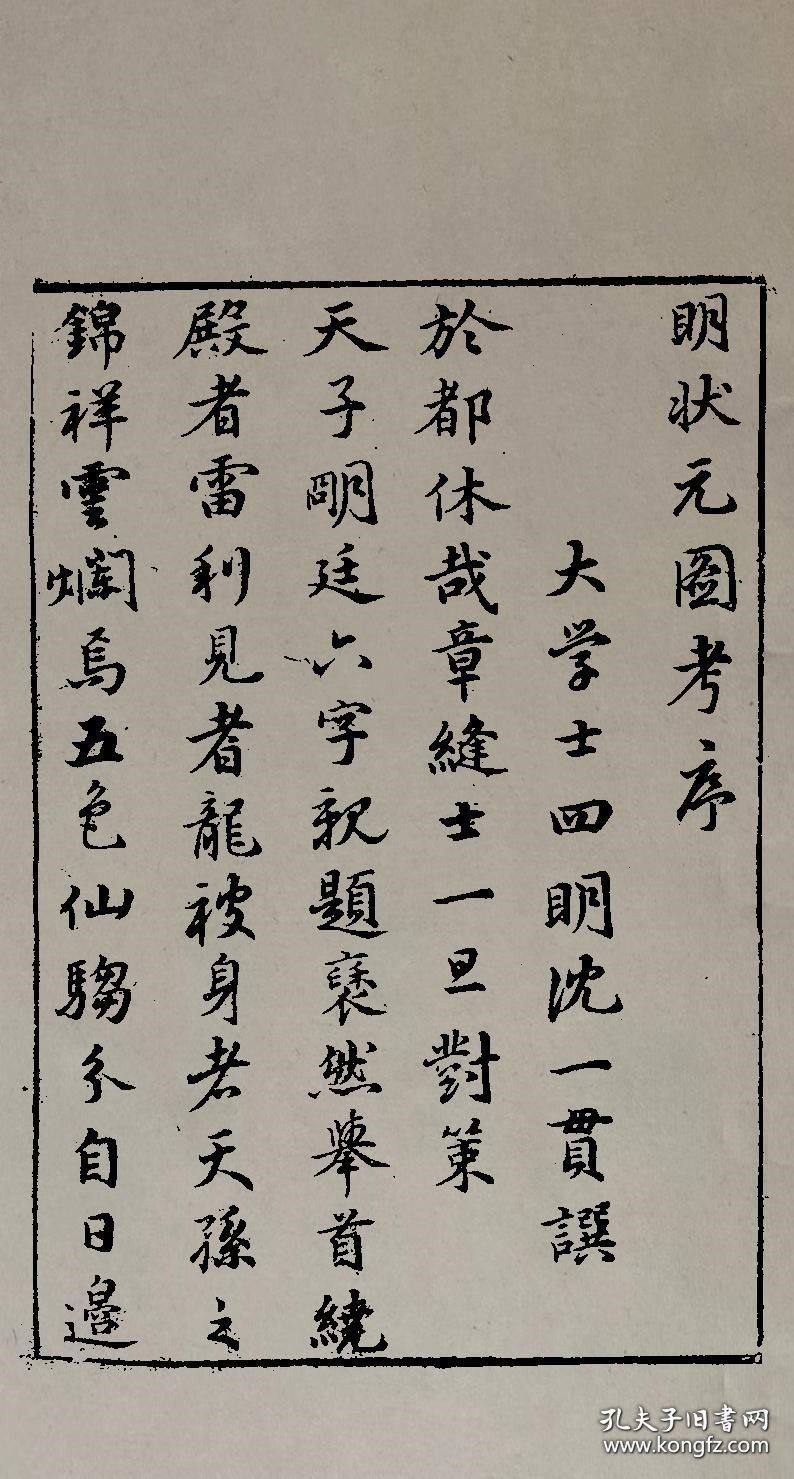 明状元圖考序
大学士四明沈一貫譔
於都休哉章縫士一旦對策
天子明廷六字親題褎然舉首繞
殿者雷利見者龍被身者天孫之
錦祥雲爛焉五色仙騶分自日邊
孔夫子旧书网
www.kongfz.com